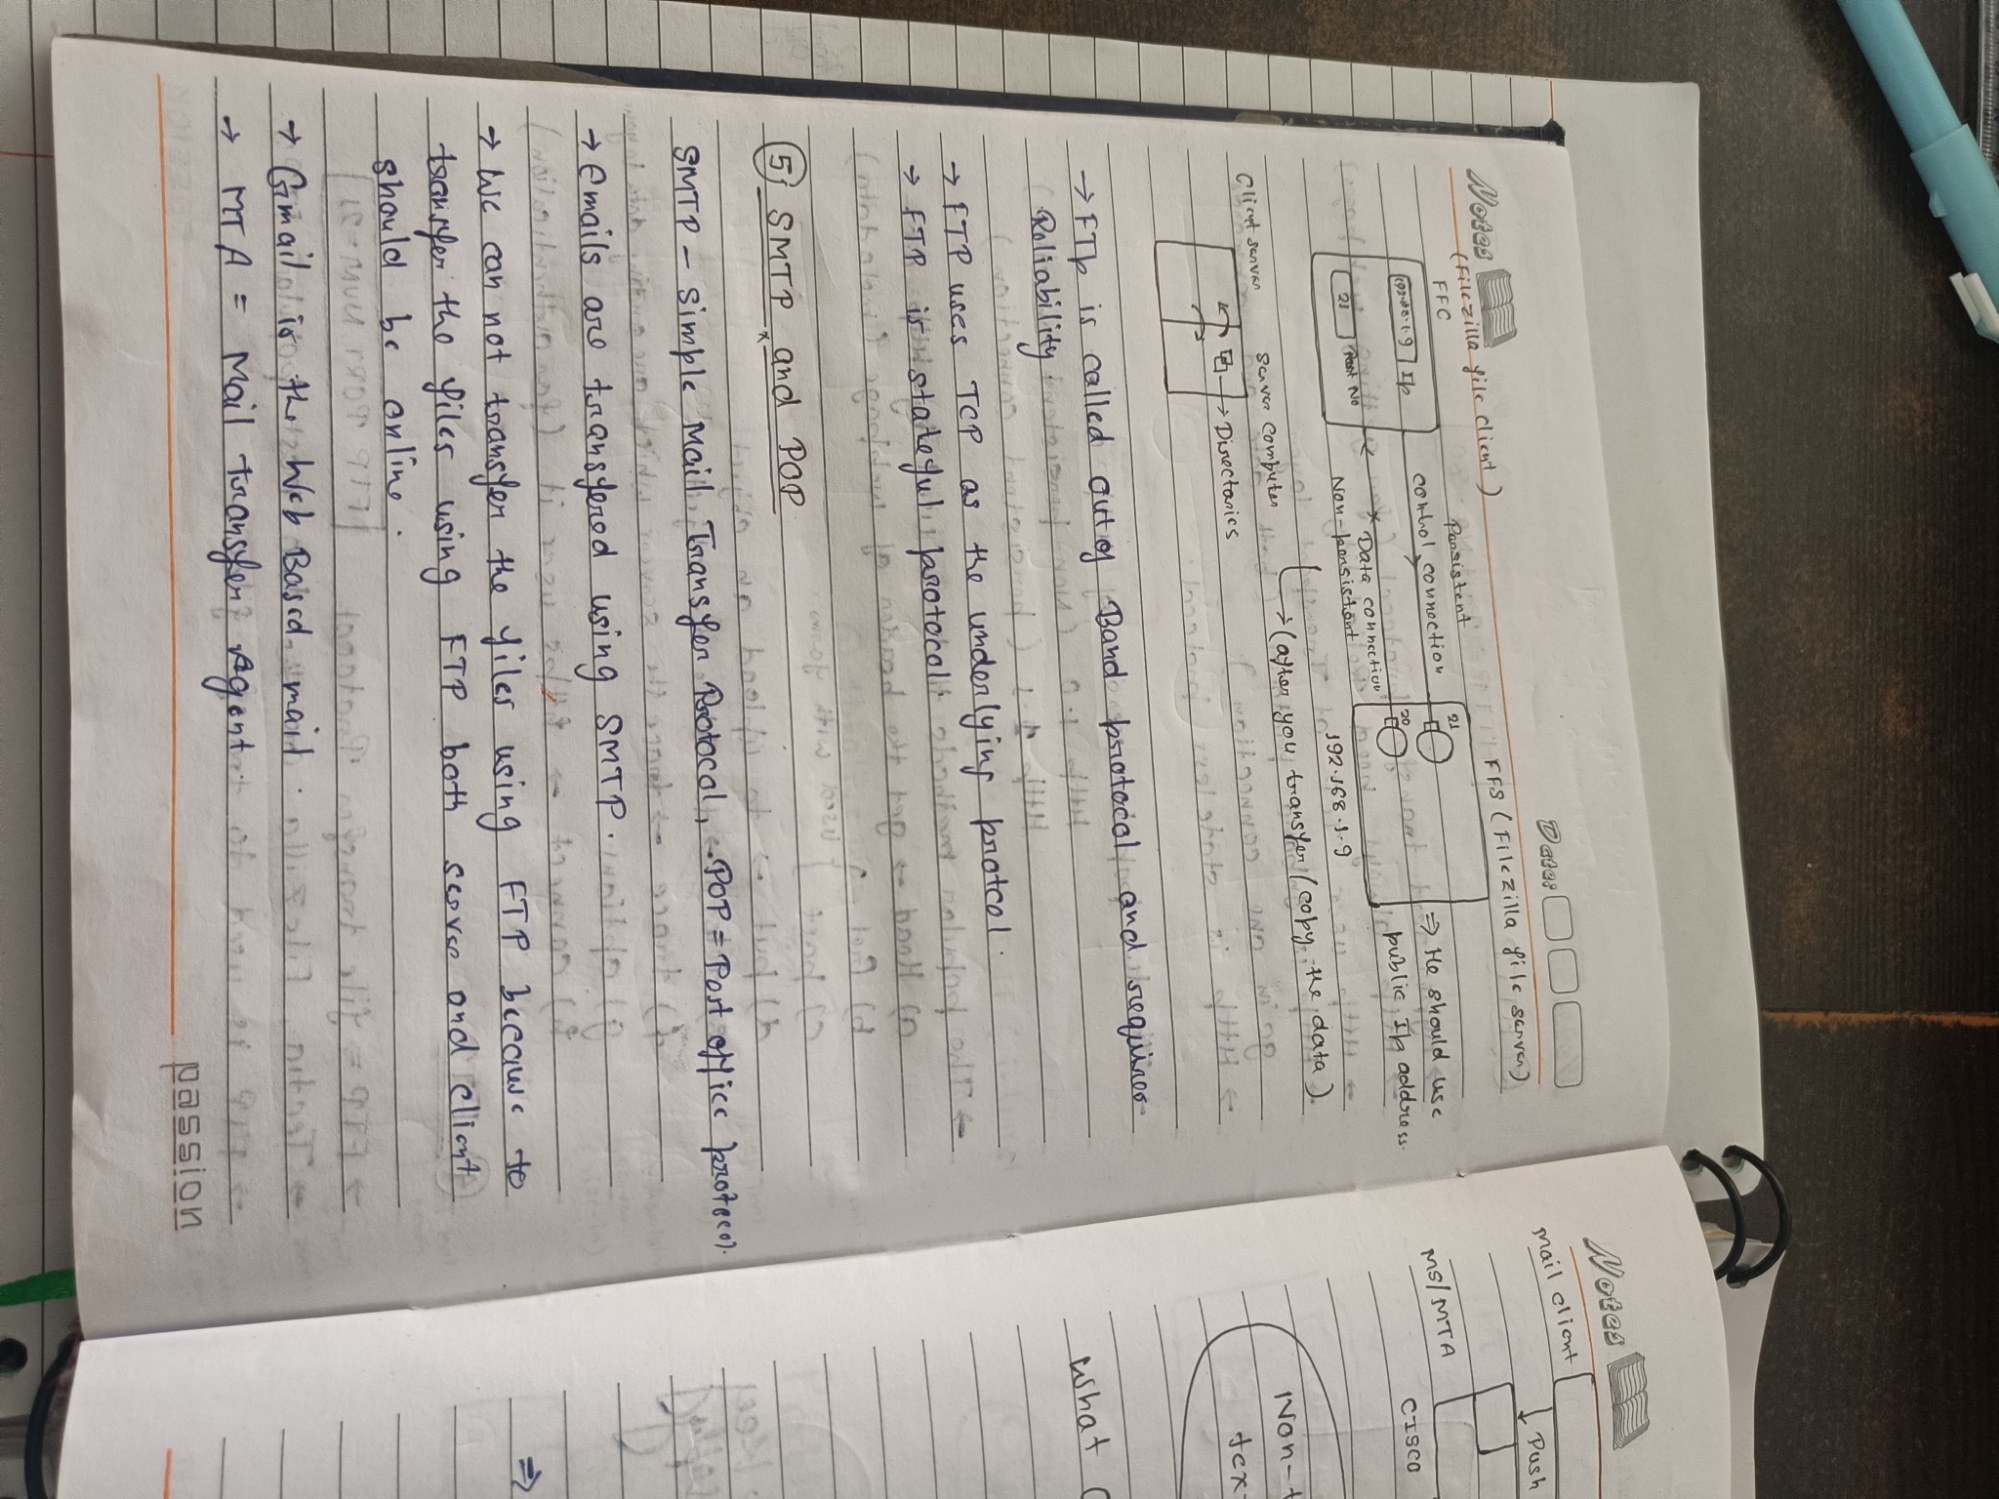 Notes
Date:
(Filezilla file client)
FFC
FFS (Filezilla file server)
Persistent
control connection
192.168.1.9 Ip
21 Port No
21
20
Data connection
Non-persistent
192.168.1.9
⇒ He should use
public Ip address.
→ (after you transfer/copy the data)
Client server
Server computer
→ Directories
→ FTP is called out of Band protocol and requires
Reliability
→ FTP uses TCP as the underlying protcol.
→ FTP is stateful protocol.
5) SMTP and POP
SMTP - Simple Mail Transfer Protocol, POP = Post office protocol.
→ Emails are transfered using SMTP.
→ We can not transfer the files using FTP because to
transfer the files using FTP both server and client
should be online.
→ Gmail is the Web Based mail.
→ MTA = Mail transfer Agent.
passion
Notes
Mail client
↓ Push
MS/MTA
CISCO
Non-t
tex
what
⇒